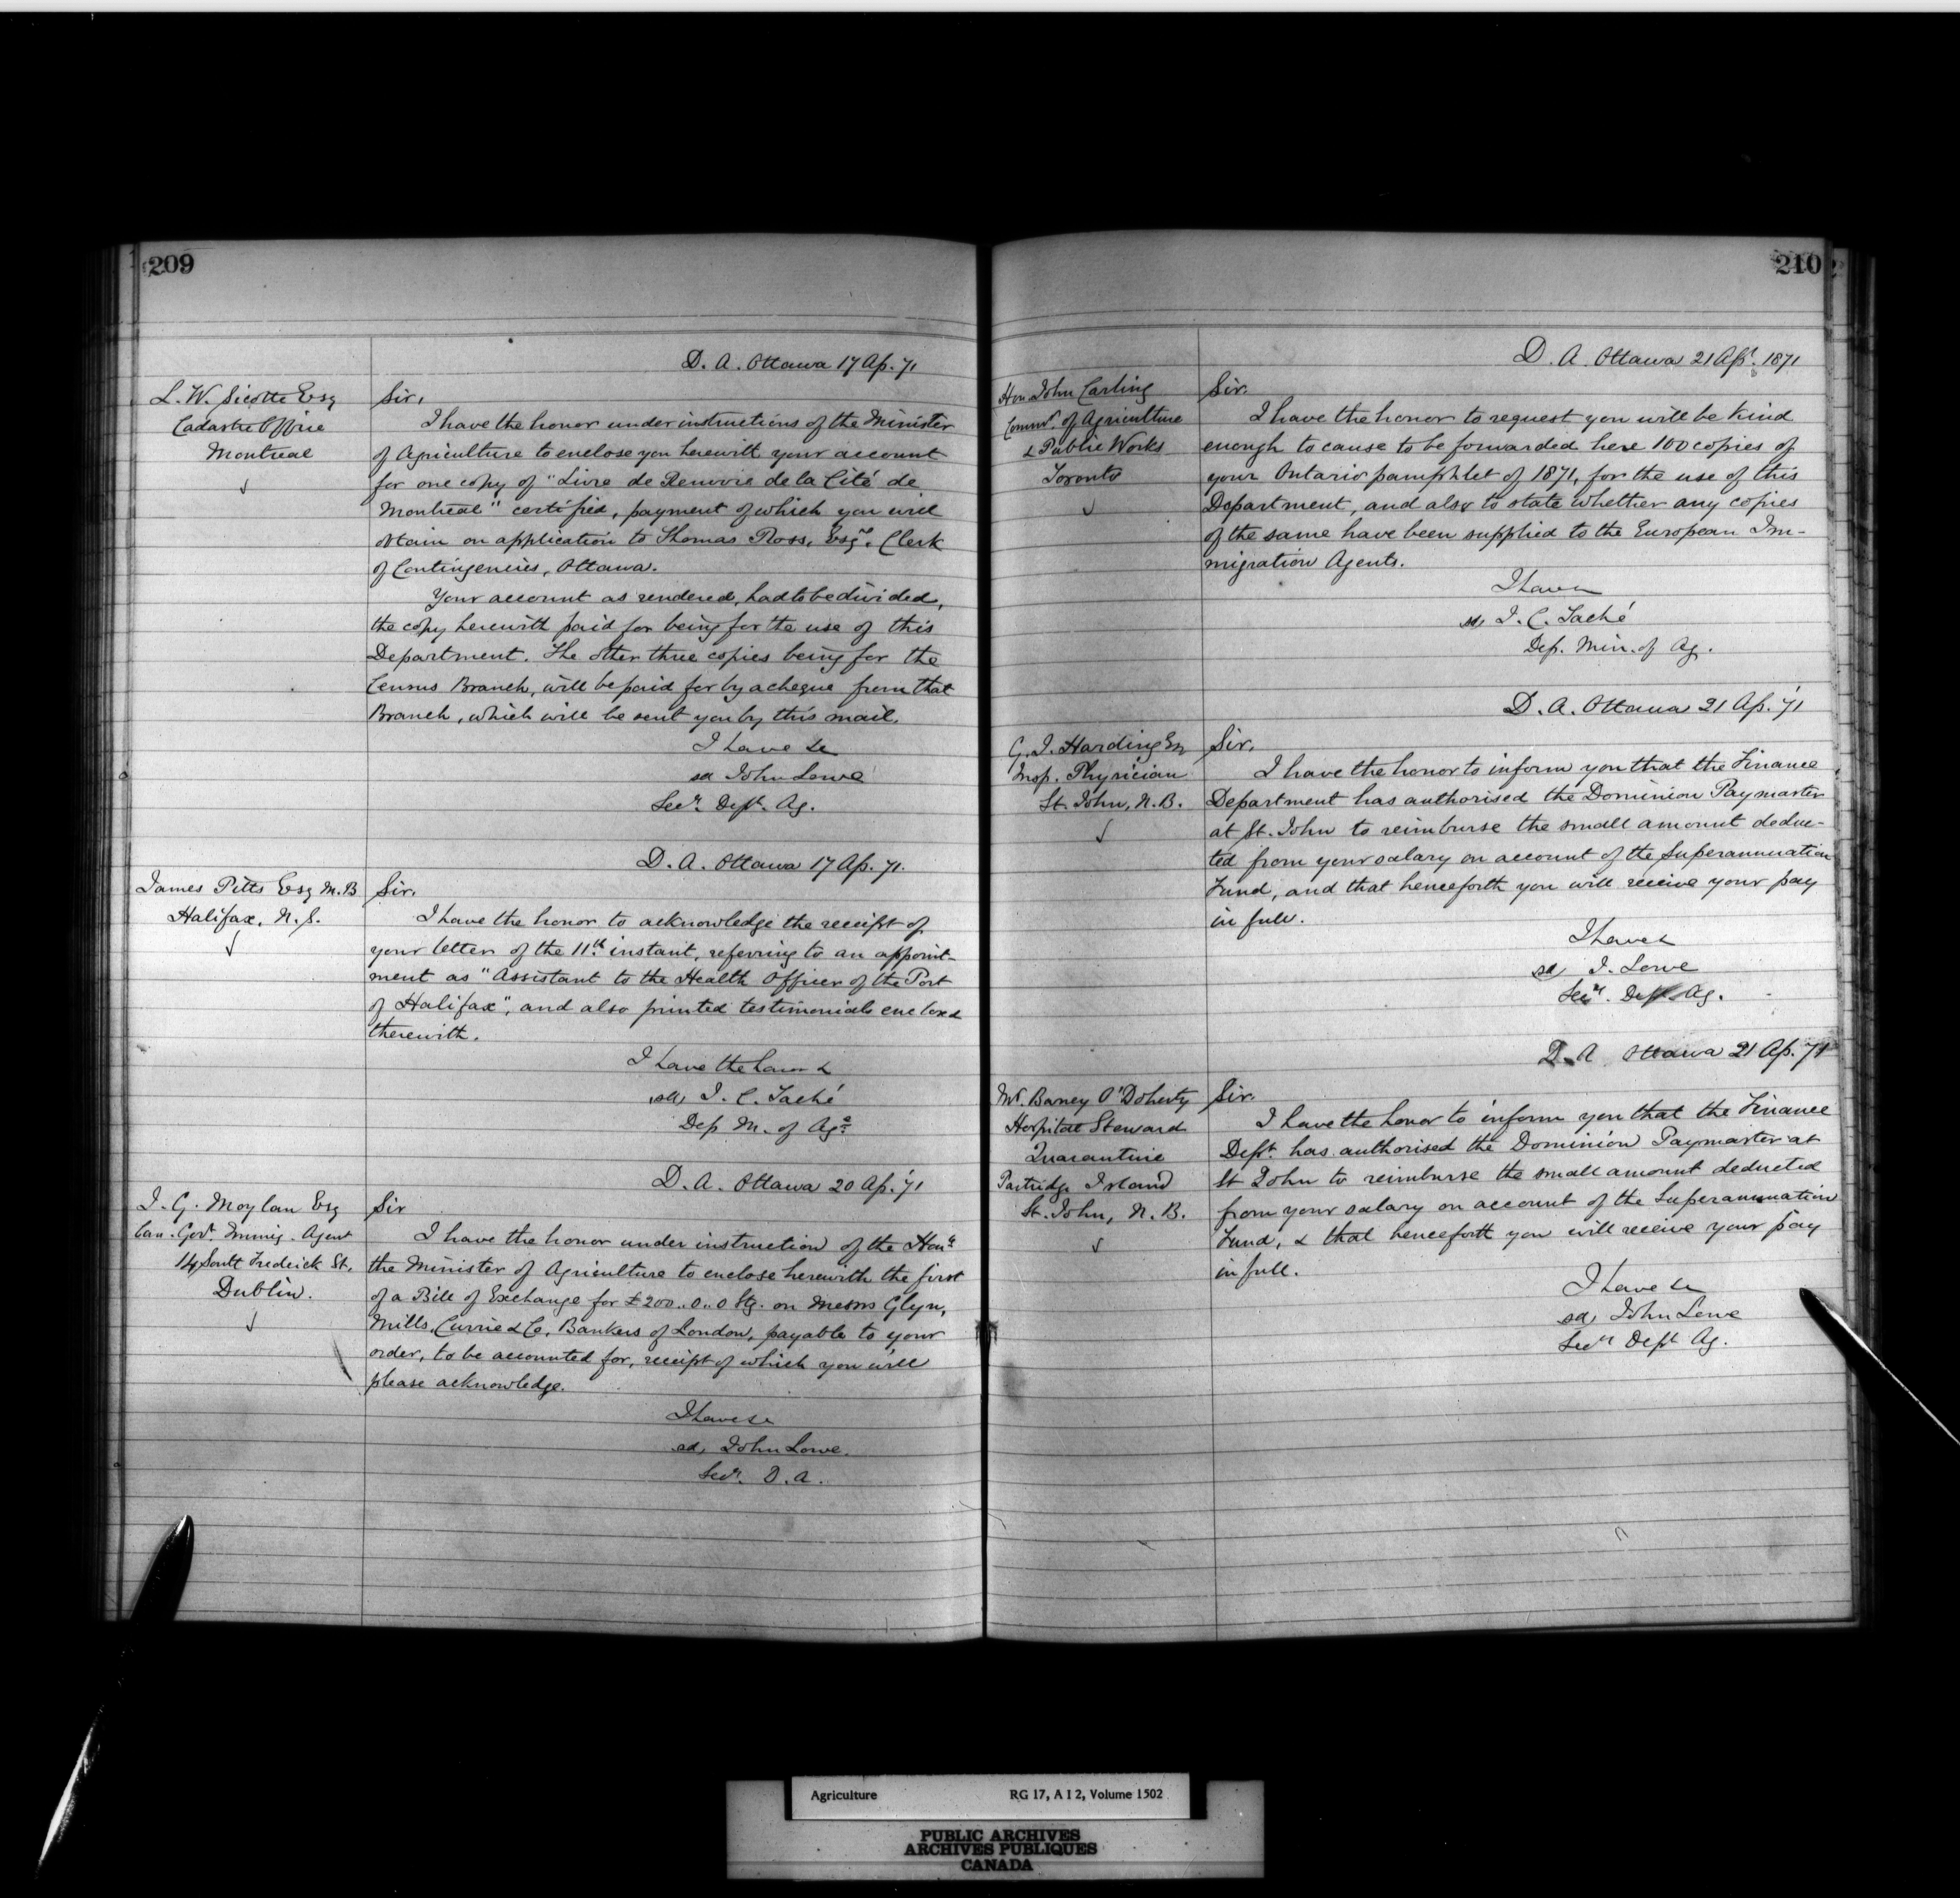 209
D. A. Ottawa 17 Ap. 71
L. W. Sicotte Esq
Cadastre Office
Montreal
Sir,
I have the honor under instructions of the Minister
of Agriculture to enclose you herewith your account
for one copy of "Livre de Renvoie de la Cité de
Montreal" certified, payment of which you will
obtain on application to Thomas Ross, Esqre. Clerk
of Contingencies, Ottawa.
Your account as rendered, had to be divided,
the copy herewith paid for being for the use of this
Department. The other three copies being for the
Census Branch, will be paid for by a cheque from that
Branch, which will be sent you by this mail.
I have &c
sd John Lowe
Secy. Dept. Ag.
D. A. Ottawa 17 Ap. 71.
James Pitts Esq M.B
Halifax, N.S.
Sir,
I have the honor to acknowledge the receipt of
your letter of the 11th instant, referring to an appoint-
ment as "Assistant to the Health Officer of the Port
of Halifax", and also printed testimonials enclosed
therewith.
I have the honor &
sd, J. C. Taché
Dep M. of Agre
D. A. Ottawa 20 Ap. 71
J. G. Moylan Esq
Can. Govt. Immig. Agent
14 South Frederick St.
Dublin.
Sir
I have the honor under instruction of the Honle
the Minister of Agriculture to enclose herewith the first
of a Bill of Exchange for £200..0..0 Stg. on Messrs Glyn,
Mills, Currie & Co, Bankers of London, payable to your
order, to be accounted for, receipt of which you will
please acknowledge.
I have &c
sd, John Lowe.
Secy. D. A.
210
D. A. Ottawa 21 Apl. 1871
Hon John Carling
Commr. of Agriculture
& Public Works
Toronto
Sir.
I have the honor to request you will be kind
enough to cause to be forwarded here 100 copies of
your Ontario pamphlet of 1871, for the use of this
Department, and also to state whether any copies
of the same have been supplied to the European Im-
migration Agents.
I have
sd, J. C. Taché
Dep. Min. of Ag.
D. A. Ottawa 21 Ap. 71
G. J. Harding Esq
Insp. Physician
St. John, N.B.
Sir.
I have the honor to inform you that the Finance
Department has authorised the Dominion Paymaster
at St. John to reimburse the small amount deduc-
ted from your salary on account of the Superannuation
Fund, and that henceforth you will receive your pay
in full.
I have &
sd, J. Lowe
Secy. Dept. Ag.
D. A Ottawa 21 Ap. 71
Mr. Barney O'Doherty
Hospital Steward
Quarantine
Partridge Island
St. John, N.B.
Sir.
I have the honor to inform you that the Finance
Dept. has authorised the Dominion Paymaster at
St John to reimburse the small amount deducted
from your salary on account of the Superannuation
Fund, & that henceforth you will receive your pay
in full.
I have &c
sd, John Lowe
Secy Dept Ag.
Agriculture RG 17, A I 2, Volume 1502
PUBLIC ARCHIVES
ARCHIVES PUBLIQUES
CANADA